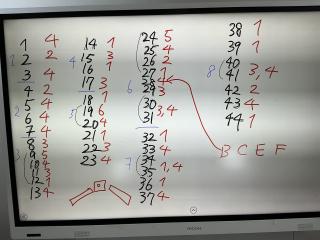 1 4
2 2
3 4
4 4
2 5 4
6 4
7 4
8 3
9 5
10 4
11 3
12 1
13 4
14 1
4 15 3
16 1
17 3
18 1
5 19 6
20 4
21 1
22 3
23 4
24 5
25 4
26 2
27 1
6 28
29 3
30 3,4
31
32 1
33 4
7 34 1,4
35
36 1
37 4
38 1
39 1
8 40 3,4
41
42 2
43 4
44 1
B C E F
RICOH